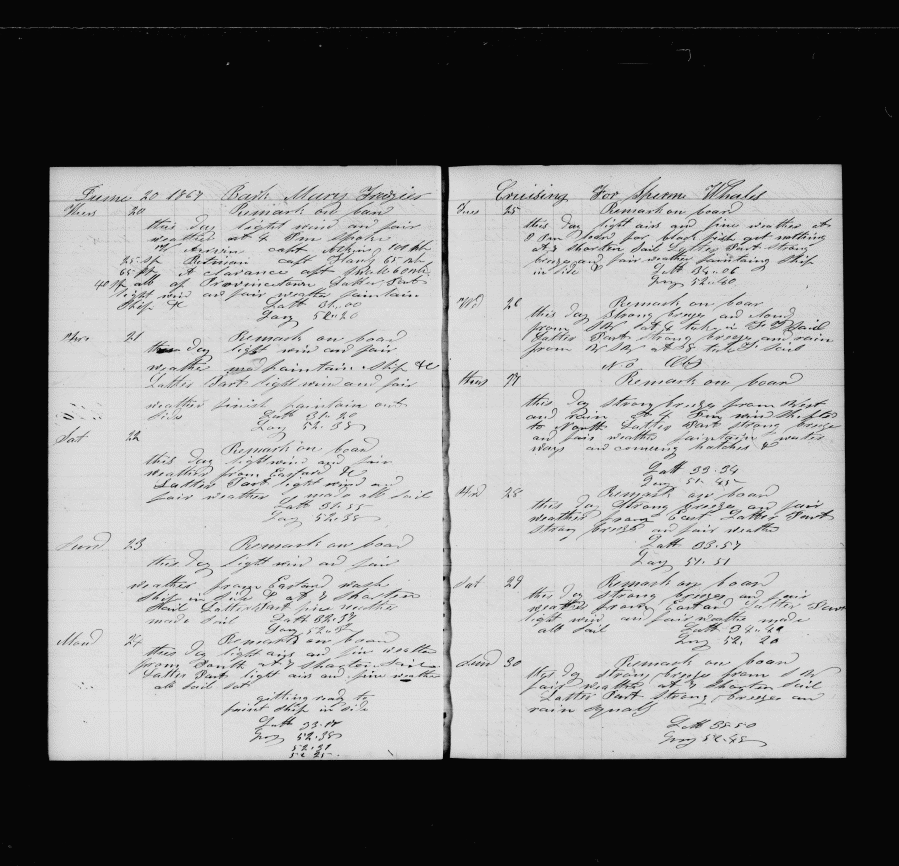 June 20 1867 Bark Mary Frazier
Thurs 20 Remark on boar
this day light wind and fair
weather at 4 Pm Spoke
capt Atkins 101 bl
25 sp capt 65 bl
65 sp Clarance capt
40 sp all of Provincetown Latter Part
light wind and fair weather paintain
Ship &c Latt 31.00
Long 52.20
21 Remark on board
this day light wind and fair
weather paintain ship &c
Latter Part light wind and fair
weather finish paintain out
side Latt 31.20
Long 52.35
Sat 22
Remark on boar
this day light wind and fair
weather from Eastard &c
Latter Part light wind and
fair weather made all Sail
Latt 31.55
Long 52.35
Sund 23 Remark on boar
this day light wind and fair
weather from Eastard wash
Ship in side & at 7 Shorten
Sail Latter Part fine weather
made Sail Latt 32.37
Long 52.
Mond 24 Remark on boar
this day light airs and fine weather
from South at 7 Shorten Sail
Latter Part light airs and fine weather
all Sail Sat
gitting ready to
paint Ship in side
Latt 33.17
Long 52.35
52.31
52.25
Cruising For Sperm Whales
Tues 25 Remark on board
this day light airs and fine weather at
8 Pm for black fish got nothing
at 7 Shorten Sail Latter Part strong
breeze and fair weather paintaing Ship
in side & Latt 34.06
Long 52.40
Wd 26 Remark on boar
this day Strong breeze and
from SW at 4 take in Sail
Latter Part Strong breeze and rain
from at 5 Sail
No Obs
thurs 27 Remark on boar
this day strong breeze from West
and Rain at 4 Pm wind shifted
to North Latter Part strong breeze
and fair weather water
ways and hatches &
Latt 33.34
Long 51.45
28 Remark on boar
this day Strong breeze and fair
weather from East Latter Part
strong breeze and fair weathe
Latt 33.57
Long 51.51
Sat 29 Remark on boar
this day Strong breeze and fair
weather from Eastard Latter Part
light wind and fair weather made
all Sail Latt 34.49
Long 52.20
Sund 30 Remark on boar
this day strong breeze from
fair weather at 7 Shorten Sail
Latter Part Strong breeze and
rain squals
Latt 35.50
Long 52.45